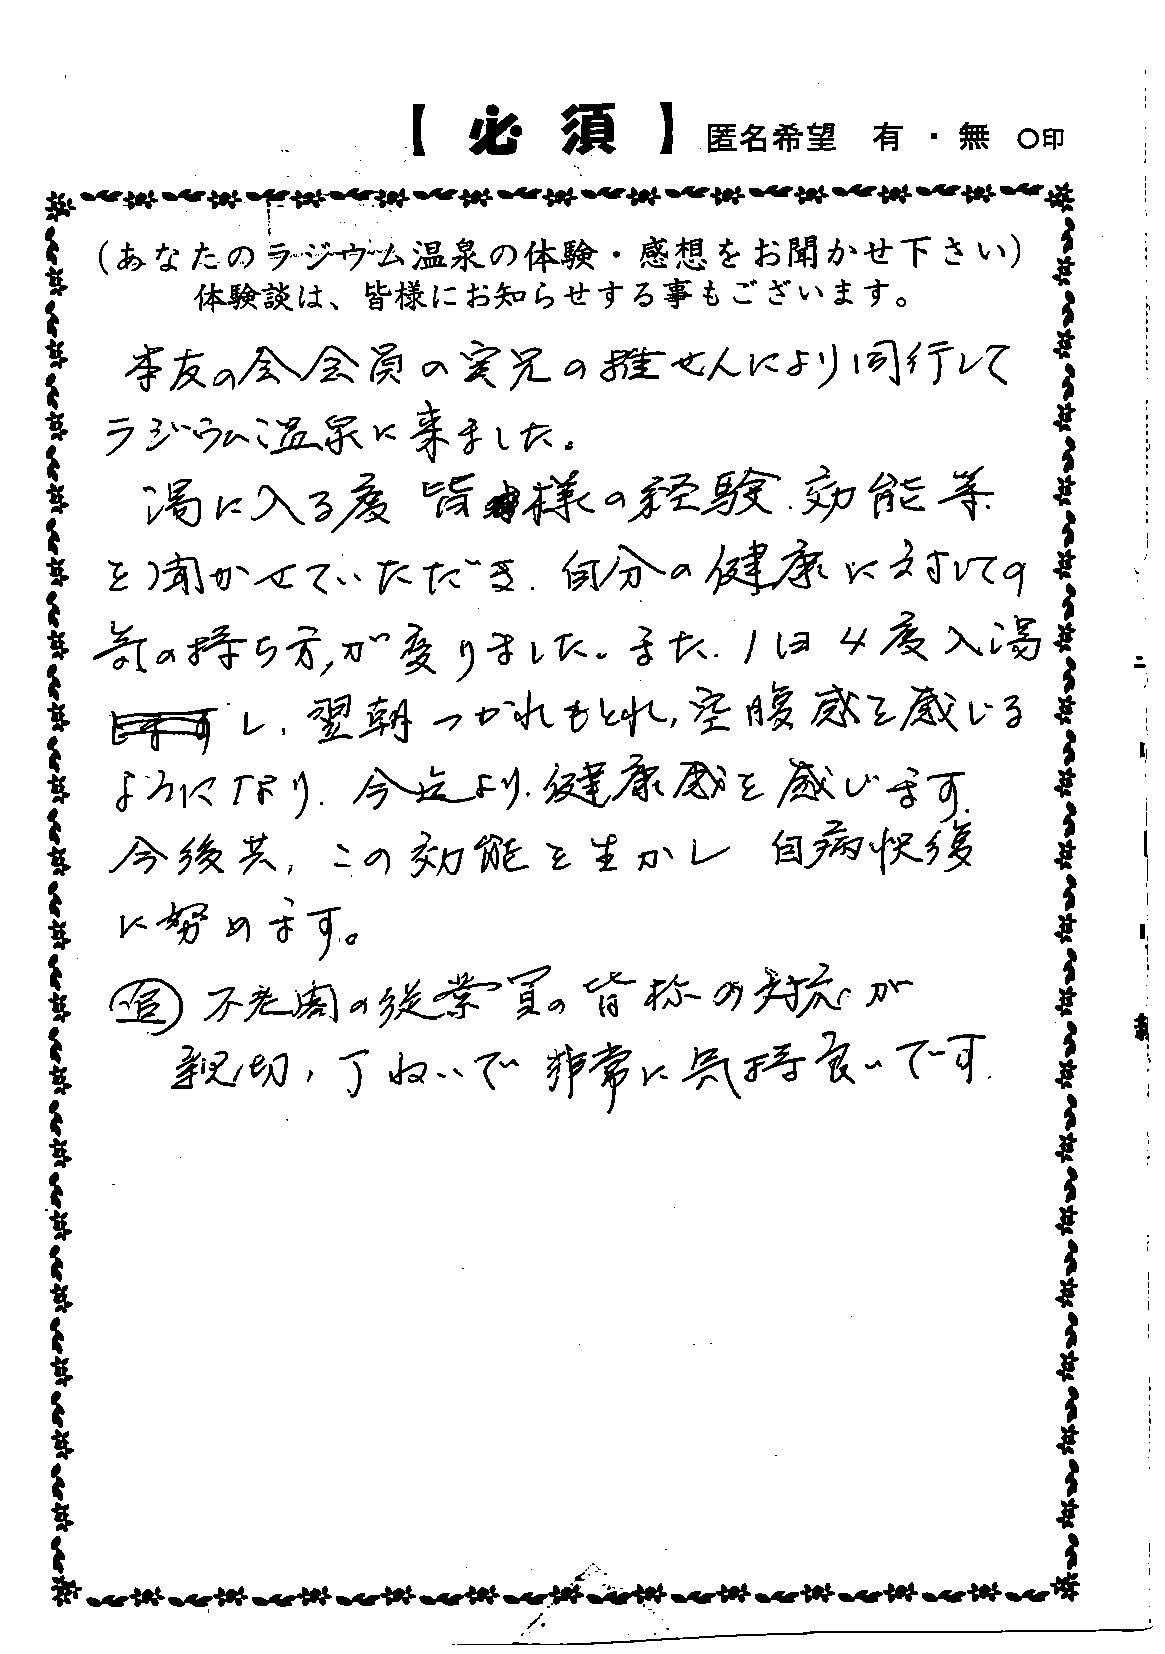 【 必 須 】 匿名希望 有 ・ 無 ○印
(あなたのラジウム温泉の体験・感想をお聞かせ下さい)
体験談は、皆様にお知らせする事もございます。
本友の会会員の実兄の推せんにより同行して
ラジウム温泉に来ました。
湯に入る度 皆様の経験、効能等
を聞かせていただき、自分の健康に対しての
気の持ち方が変りました。また、1日4度入湯
し、翌朝つかれもとれ、空腹感を感じる
ようになり、今迄より、健康感を感じます。
今後共、この効能を生かし 自病快復
に努めます。
追 不老閣の従業員の皆様の対応が
親切、丁ねいで 非常に気持良いです。